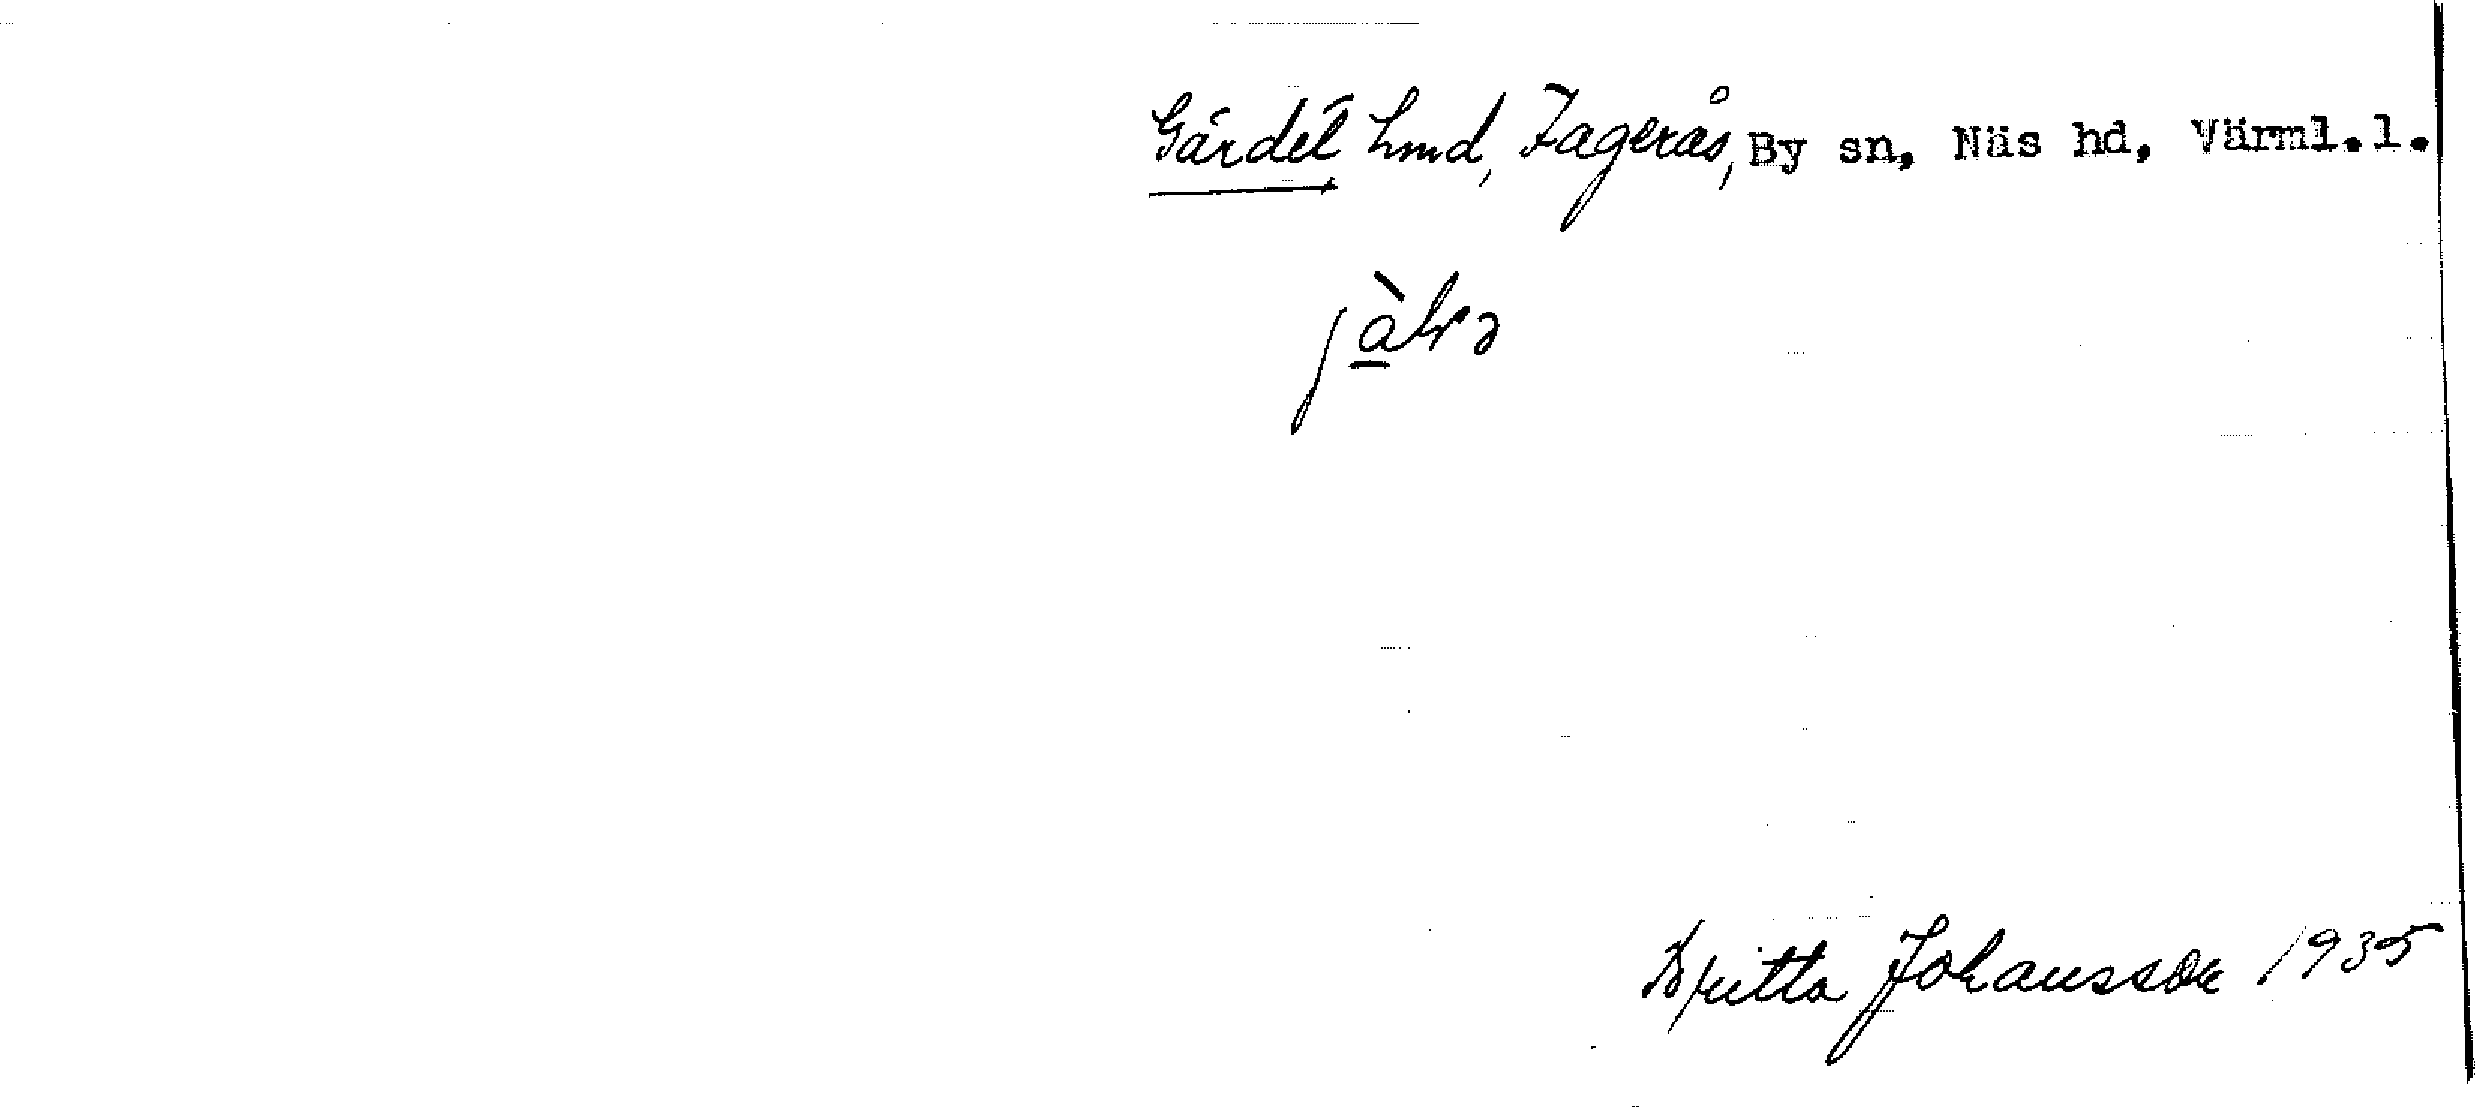 Gärdet hmd, Fagerås, By sn, Näs hd, Värml.l.
Britta Johansson 1935